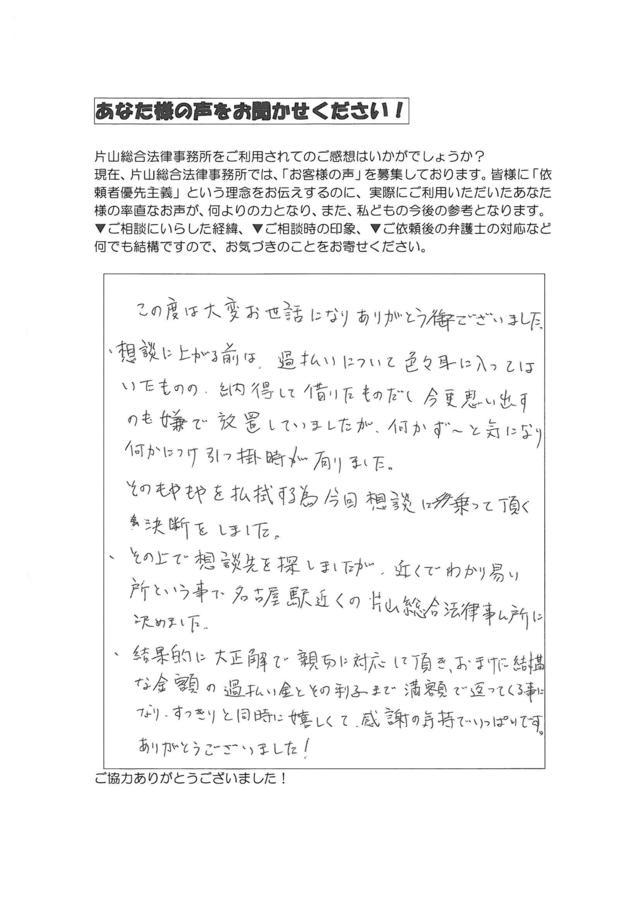 あなた様の声をお聞かせください！
片山総合法律事務所をご利用されてのご感想はいかがでしょうか？
現在、片山総合法律事務所では、「お客様の声」を募集しております。皆様に「依
頼者優先主義」という理念をお伝えするのに、実際にご利用いただいたあなた
様の率直なお声が、何よりの力となり、また、私どもの今後の参考となります。
▼ご相談にいらした経緯、▼ご相談時の印象、▼ご依頼後の弁護士の対応など
何でも結構ですので、お気づきのことをお寄せください。
この度は大変お世話になりありがとう御でございました
・想談に上がる前は、過払いについて色々耳に入っては
いたものの、納得して借りたものだし今更思い出す
のも嫌で放置していましたが、何かず〜と気になり
何かにつけ引っ掛時が有りました。
そのもやもやを払拭する為今回想談に乗って頂く
決断をしました。
、その上で想談先を探しましたが、近くでわかり易い
所という事で名古屋駅近くの片山総合法律事ム所に
決めました。
、結果的に大正解で親切に対応して頂き、おまけに結構
な金額の過払い金とその利子まで満額で返ってくる事に
なり、すっきりと同時に嬉しくて、感謝の気持でいっぱいです。
ありがとうございました！
ご協力ありがとうございました！